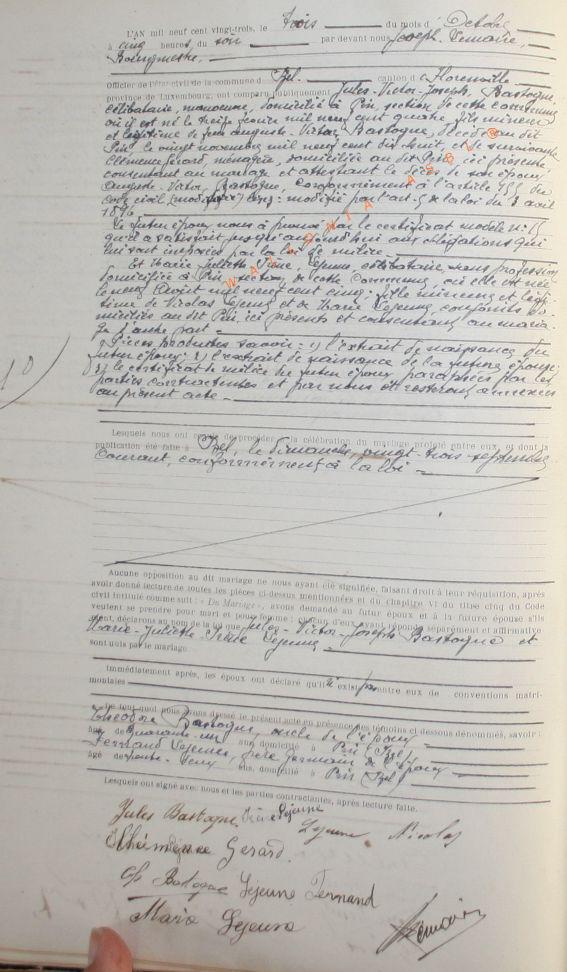 L'AN mil neuf cent vingt-trois, le trois du mois d' Octobre
à cinq heures du soir par devant nous Joseph Lemaire,
Bourgmestre,
Officier de l'état civil de la commune d' Izel, canton de Florenville
province de Luxembourg, ont comparu publiquement Jules-Victor-Joseph, Bastogne,
célibataire, domicilié à Pin, section de cette commune
où il est né le treize mil neuf cent quatre, fils mineur
et légitime de feu Auguste-Victor, Bastogne, décédé au dit
Pin, le vingt novembre mil neuf cent dix-huit, et de survivante
Clémence Gérard, ménagère, domiciliée au dit Pin, ici présente
consentant au mariage et attestant le décès de son époux
Auguste-Victor, Bastogne, conformément à l'article 155 du
code civil modifié par l'art. 5 de la loi du avril
1896
Le futur époux nous a prouvé par le certificat modèle n°
qu'il a satisfait jusqu'aujourd'hui aux obligations qui
lui sont imposées par la loi de milice.
Et Marie Juliette Irène, Lejeune célibataire, sans profession
domiciliée à Pin, section de cette Commune, où elle est née
le neuf Août mil neuf cent cinq, fille mineure et légi-
time de Nicolas Lejeune et de Marie Lejeune, conjoints do-
miciliés au dit Pin, ici présents et consentant au maria-
ge d'autre part
Pièces produites savoir: 1) l'extrait de naissance du
futur époux; 2) l'extrait de naissance de la future épouse;
3) le certificat de milice du futur époux paraphées par les
parties contractantes et par nous et resteront annexées
au présent acte.
10)
Lesquels nous ont requis de procéder à la célébration du mariage projeté entre eux, et dont la
publication été faite à Izel, le dimanche, vingt-trois septembre
courant, conformément à la loi
Aucune opposition au dit mariage ne nous ayant été signifiée, faisant droit à leur réquisition, après
avoir donné lecture de toutes les pièces ci-dessus mentionnées et du chapitre VI du titre cinq du Code
civil intitulé comme suit : « Du Mariage », avons demandé au futur époux et à la future épouse s'ils
veulent se prendre pour mari et pour femme : chacun d'eux ayant répondu séparément et affirmative
ment, déclarons au nom de la loi que Jules-Victor-Joseph Bastogne et
Marie-Juliette Irène Lejeune
sont unis par le mariage
Immédiatement après, les époux ont déclaré qu'il n'existe pas entre eux de conventions matri-
moniales
De tout quoi nous avons dressé le présent acte en présence des témoins ci dessous dénommés, savoir :
Théodore Bastogne, oncle de l'époux
âgé de quarante-un ans domicilié à Pin (Izel)
Fernand Lejeune, frère germain de l'épouse
âgé de trente-deux ans, domicilié à Pin (Izel)
Lesquels ont signé avec nous et les parties contractantes, après lecture faite.
Jules Bastogne Irène Lejeune
Lejeune Nicolas
Gerard.
Bastogne Lejeune Fernand
Maria Lejeune
Lemaire
WALLONIA ASBL ©